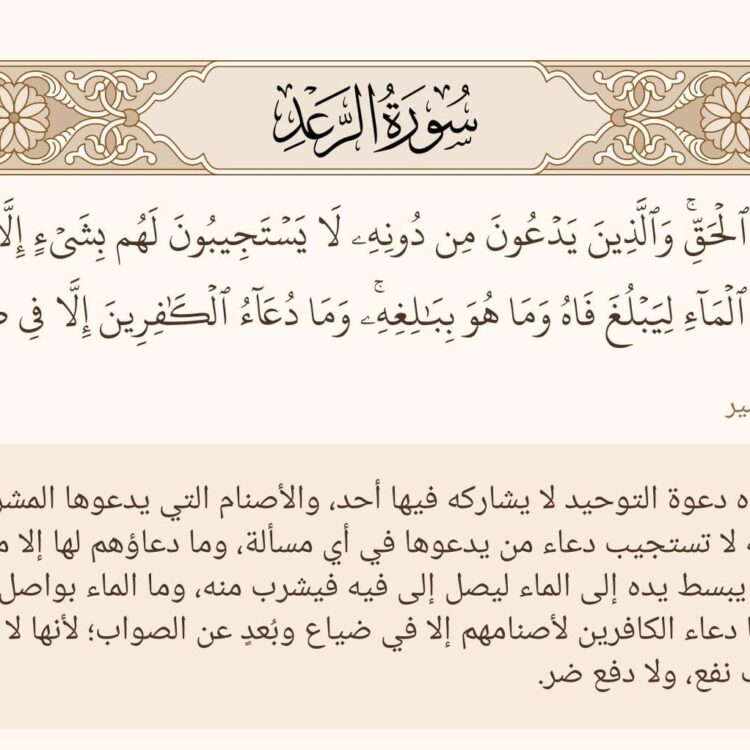 سُورَةُ الرَّعۡدِ
ٱلۡحَقِّۚ وَٱلَّذِينَ يَدۡعُونَ مِن دُونِهِۦ لَا يَسۡتَجِيبُونَ لَهُم بِشَيۡءٍ إِلَّا
ٱلۡمَآءِ لِيَبۡلُغَ فَاهُ وَمَا هُوَ بِبَٰلِغِهِۦۚ وَمَا دُعَآءُ ٱلۡكَٰفِرِينَ إِلَّا فِي
دعوة التوحيد لا يشاركه فيها أحد، والأصنام التي يدعوها
لا تستجيب دعاء من يدعوها في أي مسألة، وما دعاؤهم لها إلا
يبسط يده إلى الماء ليصل إلى فيه فيشرب منه، وما الماء بواصل
دعاء الكافرين لأصنامهم إلا في ضياع وبُعدٍ عن الصواب؛ لأنها لا
نفع، ولا دفع ضر.